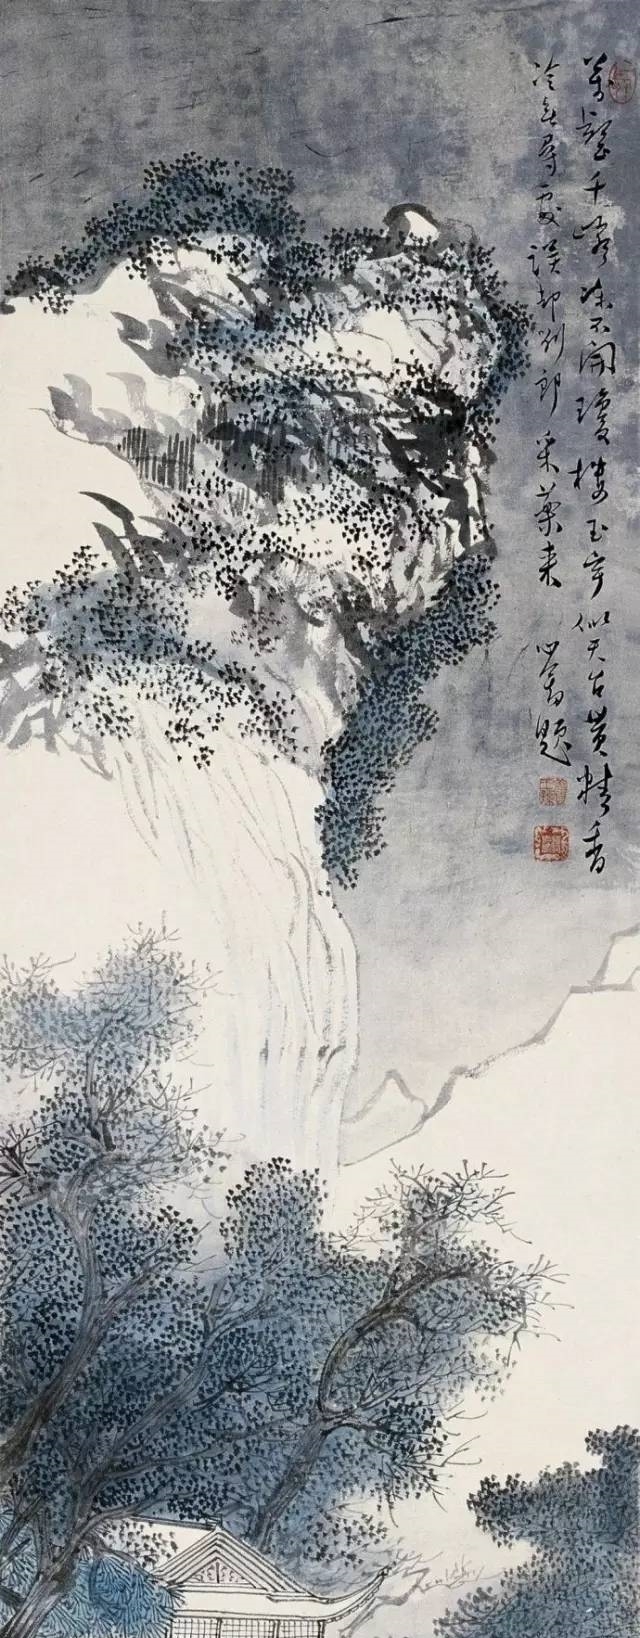 萬壑千峰凍不開瓊樓玉宇似天台黃精香
冷無尋處誤却劉郎采藥來 心畬題